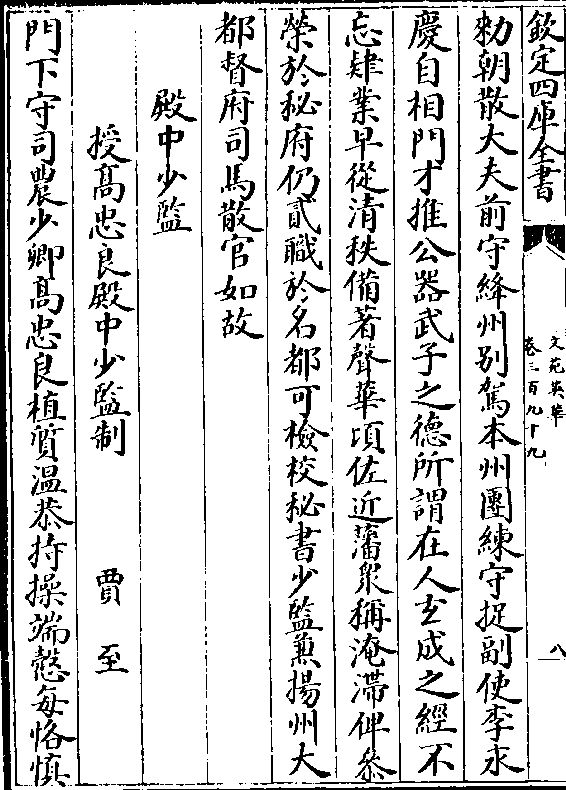 欽定四庫全書
文苑英華
卷三百九十九
八
勑朝散大夫前守絳州别駕本州團練守捉副使李永
慶自相門才推公器武子之德所謂在人玄成之經不
忘肄業早從清秩備著聲華頃佐近藩衆稱淹滯俾叅
榮於秘府仍貳職於名都可檢校秘書少監兼揚州大
都督府司馬散官如故
殿中少監
授髙忠良殿中少監制 賈至
門下守司農少卿髙忠良植質温恭持操端慤每恪慎